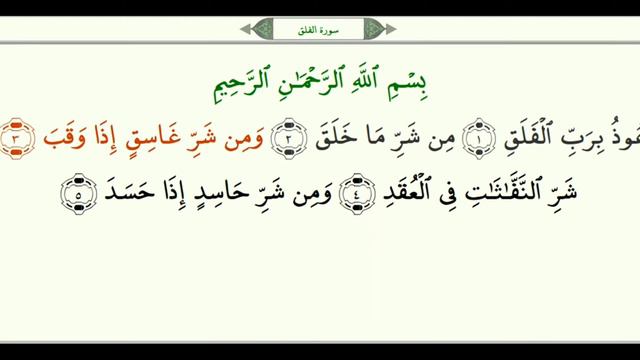 سورة الفلق
بِسْمِ ٱللَّهِ ٱلرَّحْمَـٰنِ ٱلرَّحِيمِ
بِرَبِّ ٱلْفَلَقِ ١ مِن شَرِّ مَا خَلَقَ ٢ وَمِن شَرِّ غَاسِقٍ إِذَا وَقَبَ ٣
شَرِّ ٱلنَّفَّـٰثَـٰتِ فِى ٱلْعُقَدِ ٤ وَمِن شَرِّ حَاسِدٍ إِذَا حَسَدَ ٥